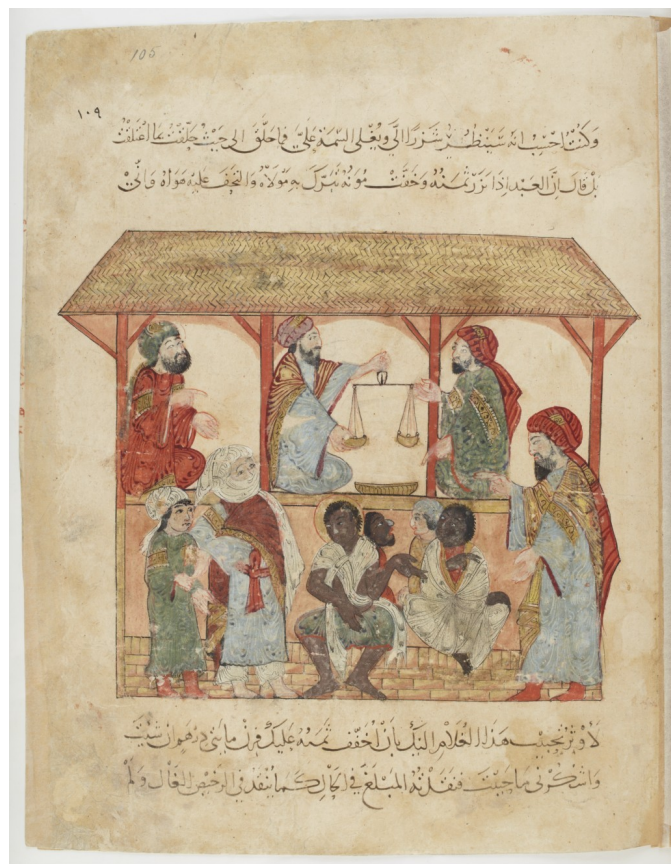 105
١٠٩
وكنت احسب انه سينظر شزرا الي ويغلي السمة علي فما حلق الى حيث حلقت ولا اعتلق بما اعتلقت
بل قال ان العبد اذا نزر ثمنه وخفت مونه تبرك به مولاه والتحف عليه هواه واني
لاوثر تحبيب هذا الغلام اليك بان اخفف ثمنه عليك فزن مايتي درهم ان شيت
واشكر لي ما حييت فنقدته المبلغ في الحال كما ينقد في الرخيص الغال ولم